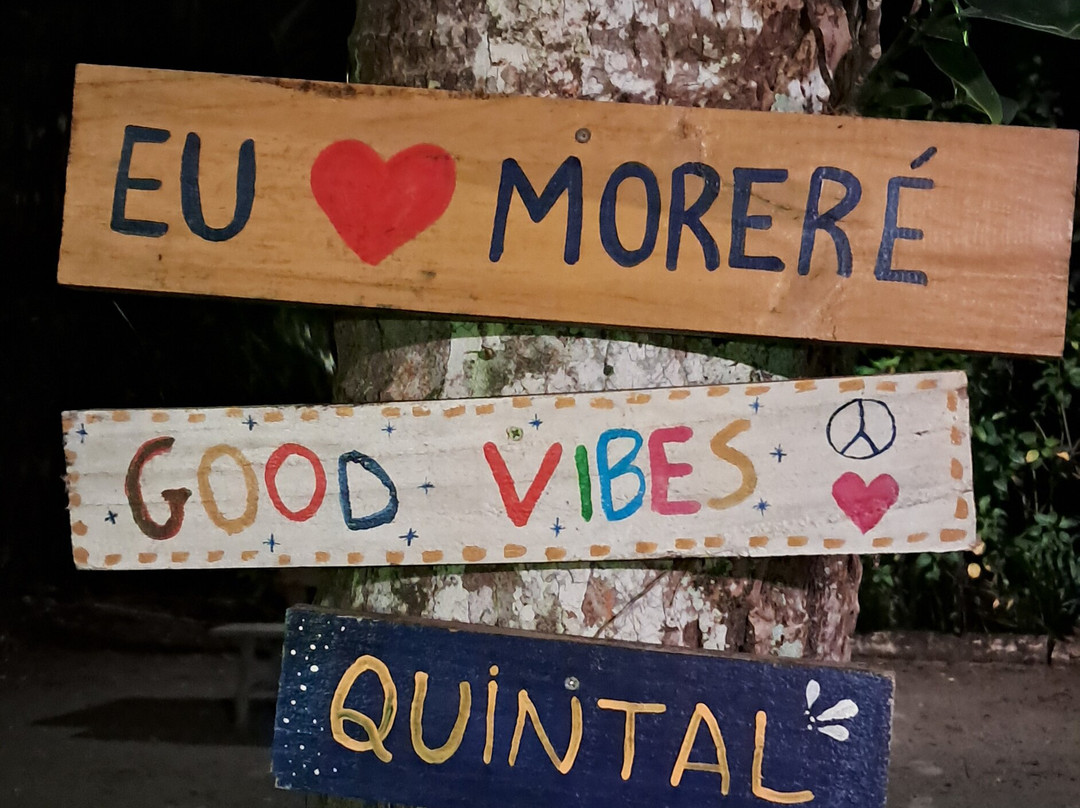 EU ❤ MORERÉ
GOOD VIBES
QUINTAL